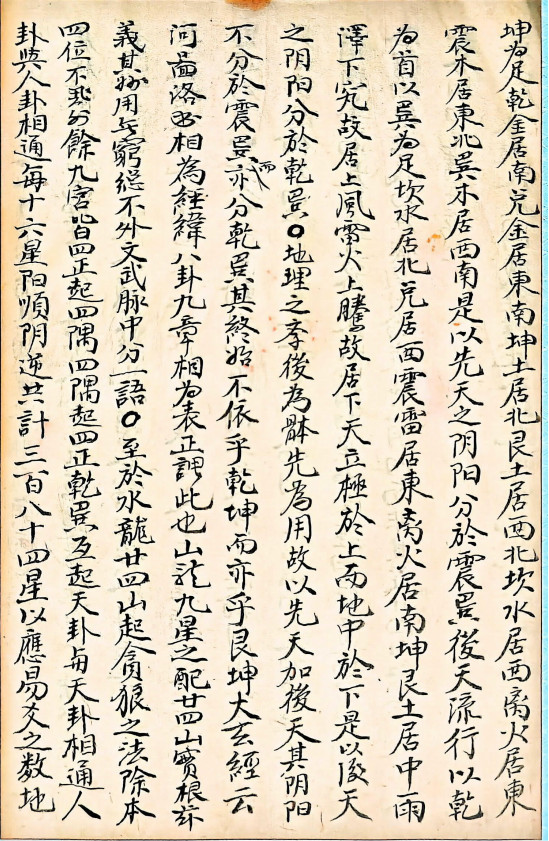 坤为足乾金居南兑金居東南坤土居北艮土居西北坎水居西离火居東
震木居東北巽木居西南是以先天之阴阳分於震巽後天流行以乾
为首以巽为足坎水居北兑居西震雷居東离火居南坤艮土居中雨
澤下究故居上風雷火上騰故居下天立極於上而地中於下是以後天
之阴阳分於乾巽〇地理之孝後為體先為用故以先天加後天其阴阳
不分於震巽而亦分乾巽其終始不依乎乾坤而亦乎艮坤大玄經云
河畾洛书相為經緯八卦九章相为表正謂此也山龙九星之配廿四山實根
義其妙用无窮總不外文武脉中分一語〇至於水龍廿四山起貪狼之法除本
四位不飛外餘九宫皆四正起四隅四隅起四正乾巽互起天卦每天卦相通人
卦與人卦相通每十六星阳順阴逆共計三百八十四星以應易爻之数地